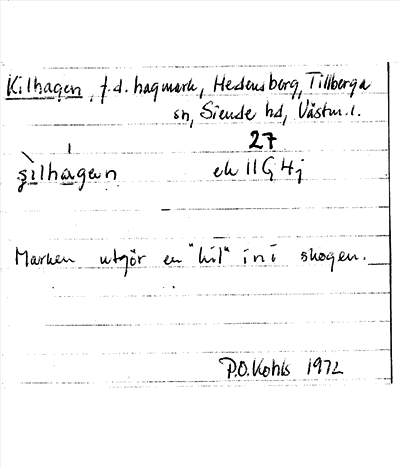 Kilhagen, f.d. hagmark, Hedensberg, Tillberga
sn, Siende hd, Västm. l.
27
şìlhágen ek 11G 4j
Marken utgör en "kil" in i skogen.
P.O. Kohls 1972